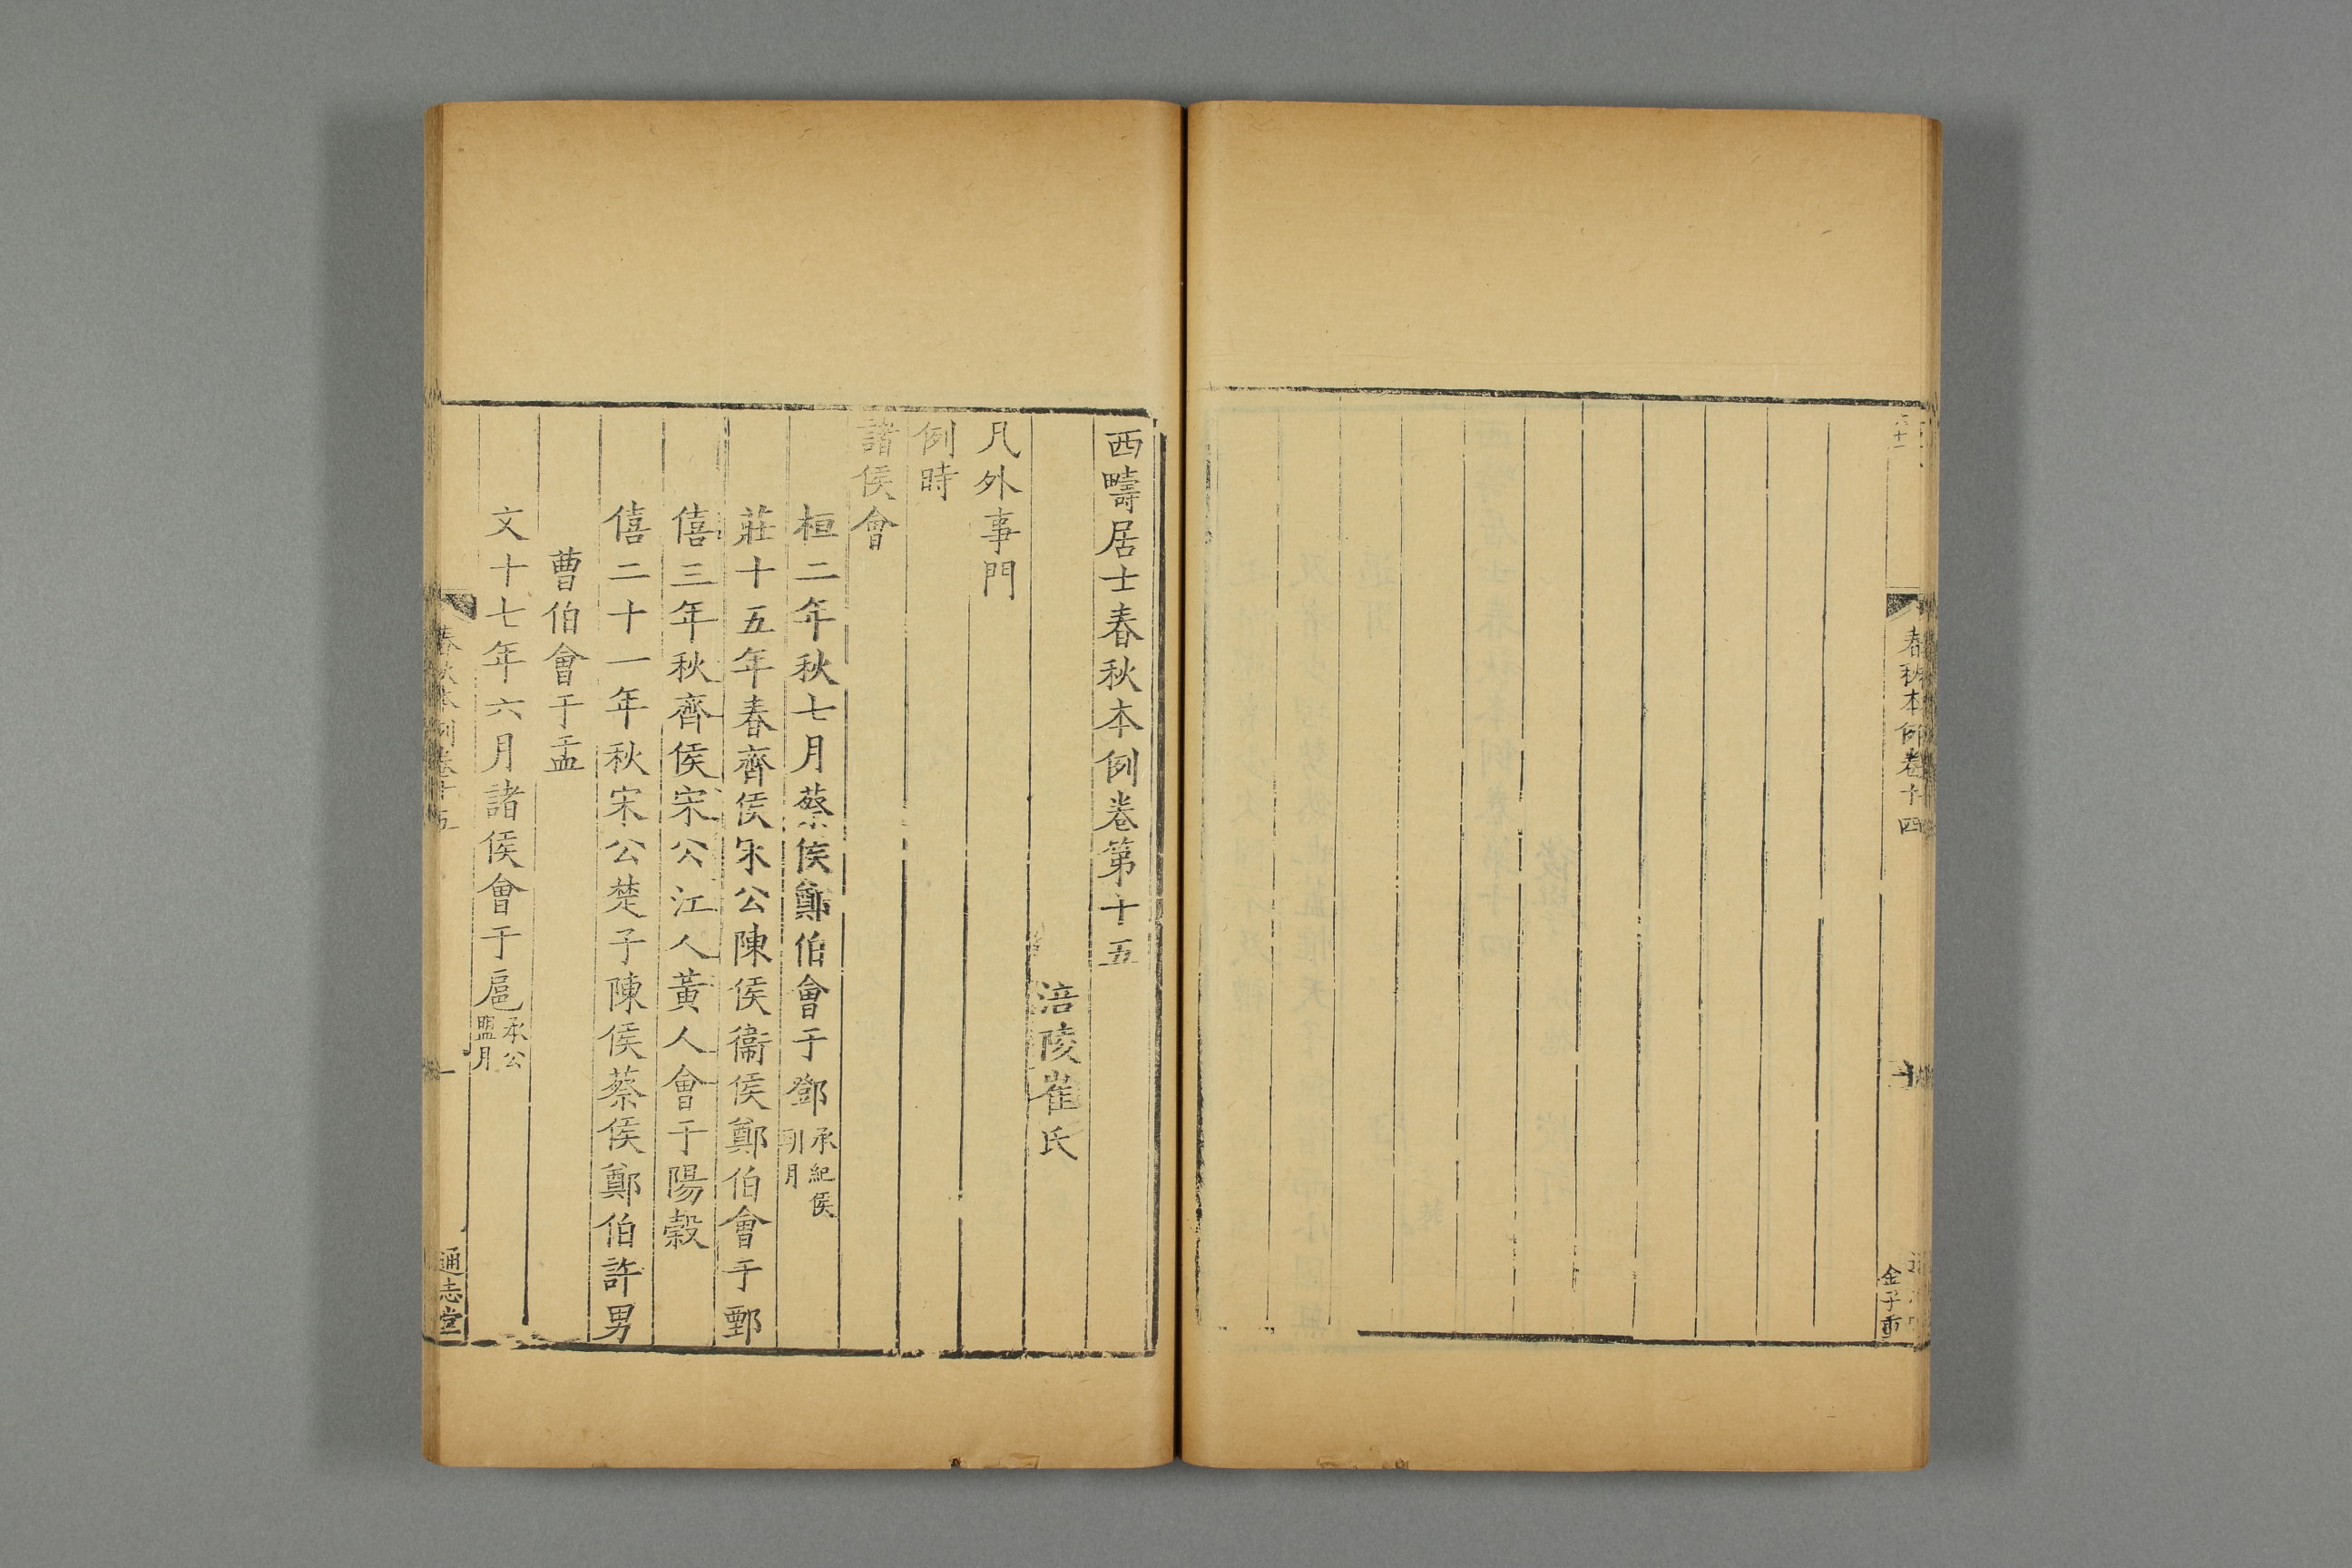 春秋本例卷十四
十
金子重
西疇居士春秋本例卷第十五
涪陵崔氏
凡外事門
例時
諸侯會
桓二年秋七月蔡侯鄭伯會于鄧承紀侯朝月
莊十五年春齊侯宋公陳侯衞侯鄭伯會于鄄
僖三年秋齊侯宋公江人黃人會于陽穀
僖二十一年秋宋公楚子陳侯蔡侯鄭伯許男
曹伯會于盂
文十七年六月諸侯會于扈承公盟月
春秋本例卷十五
一
通志堂